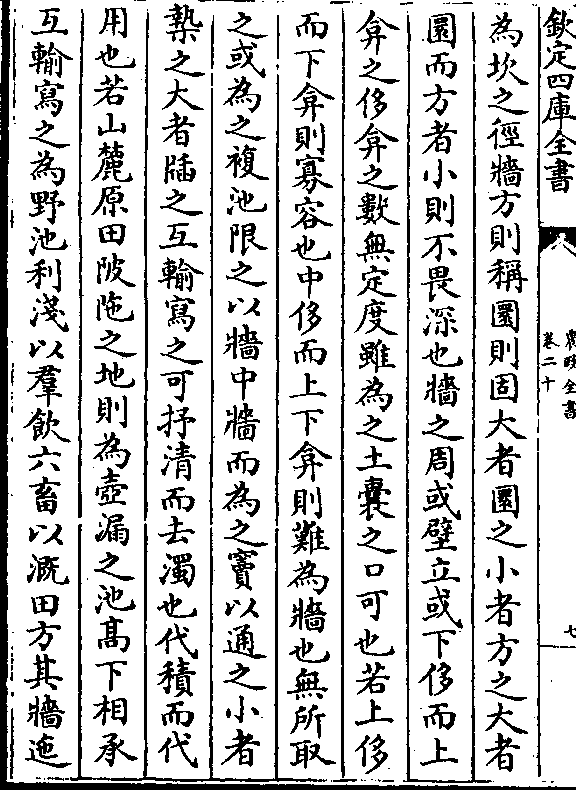 欽定四庫全書
農政全書
卷二十
七
為坎之徑牆方則稱圜則固大者圜之小者方之大者
圜而方者小則不畏深也牆之周或壁立或下侈而上
弇之侈弇之數無定度雖為之土囊之口可也若上侈
而下弇則寡容也中侈而上下弇則難為牆也無所取
之或為之複池限之以牆中牆而為之竇以通之小者
槷之大者牐之互輸寫之可抒清而去濁也代積而代
用也若山麓原田陂陁之地則為壺漏之池高下相承
互輸寫之為野池利淺以羣飲六畜以溉田方其牆迤